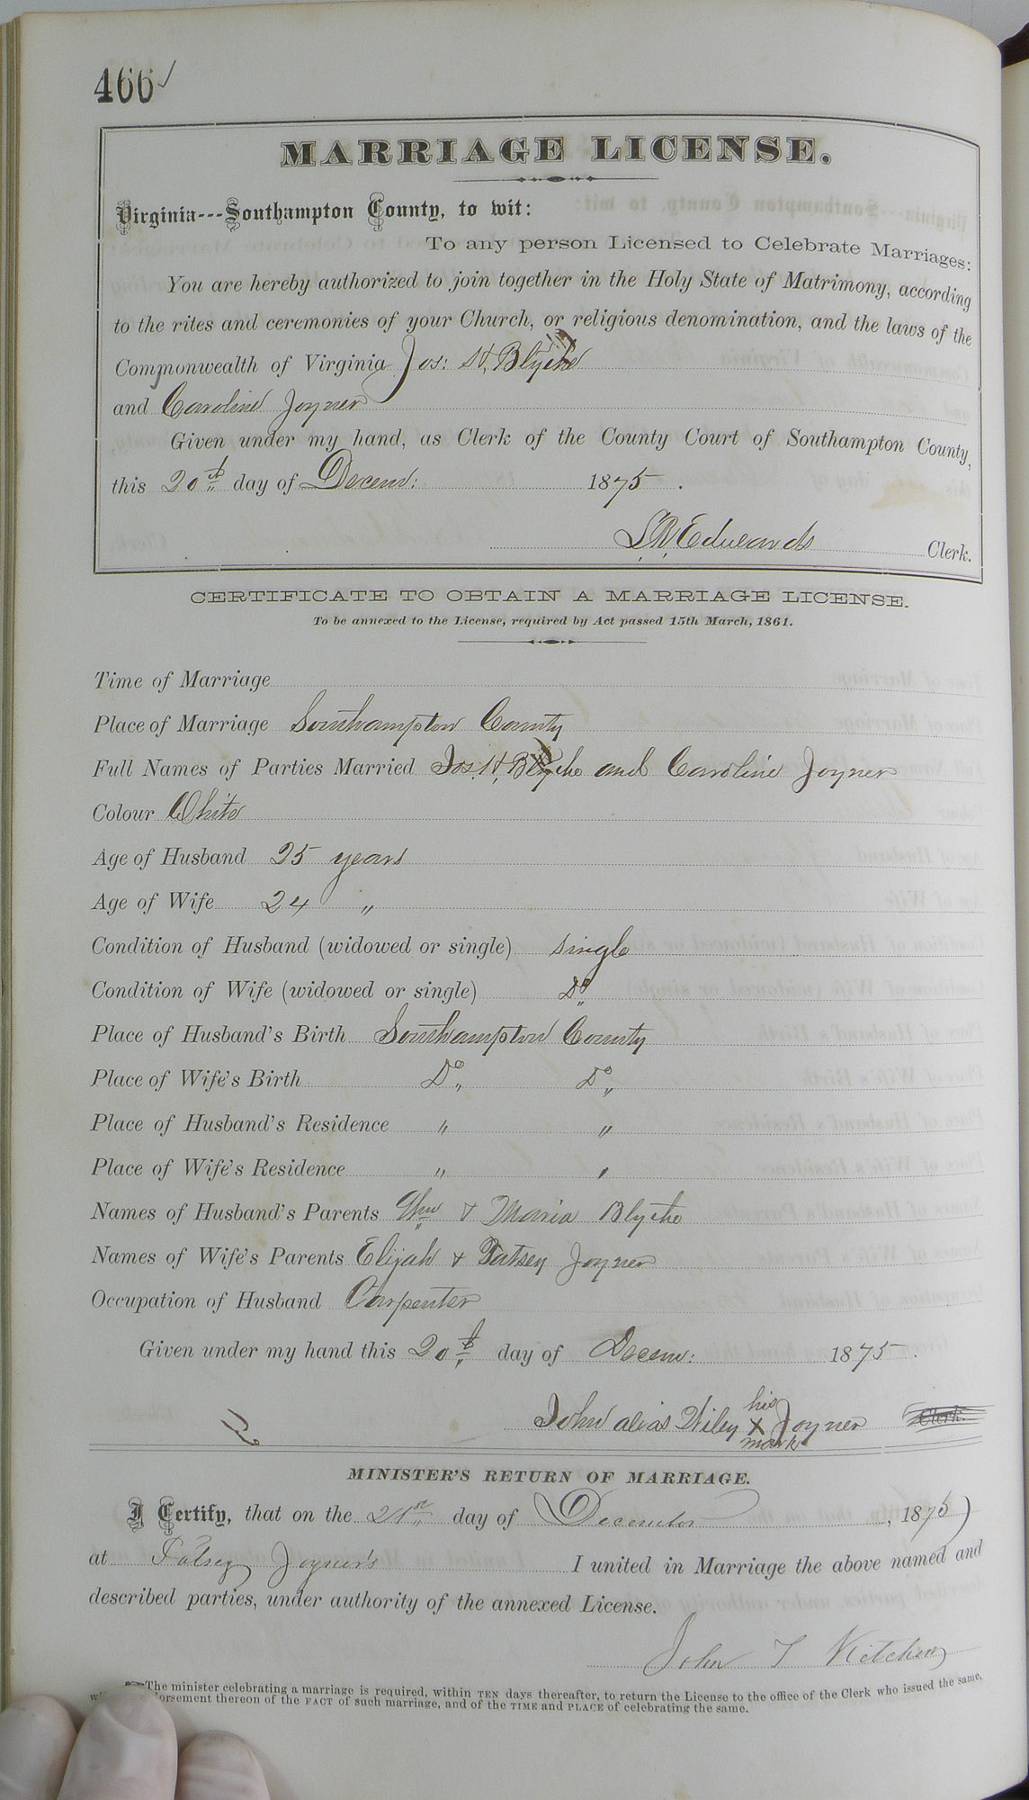 466
MARRIAGE LICENSE.
Virginia---Southampton County, to wit:
To any person Licensed to Celebrate Marriages:
You are hereby authorized to join together in the Holy State of Matrimony, according
to the rites and ceremonies of your Church, or religious denomination, and the laws of the
Commonwealth of Virginia Jos: H. Blythe
and Caroline Joyner
Given under my hand, as Clerk of the County Court of Southampton County,
this 20th day of Decem: 1875.
L. R. Edwards Clerk.
CERTIFICATE TO OBTAIN A MARRIAGE LICENSE.
To be annexed to the License, required by Act passed 15th March, 1861.
Time of Marriage
Place of Marriage Southampton County
Full Names of Parties Married Jos. H. Blythe and Caroline Joyner
Colour White
Age of Husband 25 years
Age of Wife 24 "
Condition of Husband (widowed or single) single
Condition of Wife (widowed or single) Do
Place of Husband's Birth Southampton County
Place of Wife's Birth Do " Do "
Place of Husband's Residence " "
Place of Wife's Residence " "
Names of Husband's Parents Wm & Maria Blythe
Names of Wife's Parents Elijah & Patsey Joyner
Occupation of Husband Carpenter
Given under my hand this 20th day of Decem: 1875.
his
John alias Wiley X Joyner Clerk.
mark
MINISTER'S RETURN OF MARRIAGE.
I Certify, that on the 21st day of December, 1875
at Patsey Joyner's I united in Marriage the above named and
described parties, under authority of the annexed License.
John T Kitchen
The minister celebrating a marriage is required, within TEN days thereafter, to return the License to the office of the Clerk who issued the same,
thereon of the FACT of such marriage, and of the TIME and PLACE of celebrating the same.